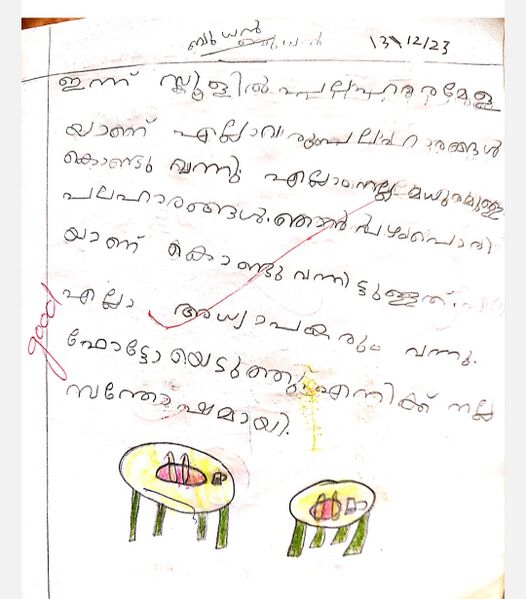 ബുധൻ 13/12/23
ഇന്ന് സ്കൂളിൽ പലഹാരമേള
യാണ് എല്ലാവരും പലഹാരങ്ങൾ
കൊണ്ടു വന്നു. എല്ലാം നല്ല മധുരമുള്ള
പലഹാരങ്ങൾ. ഞാൻ പഴംപൊരി
യാണ് കൊണ്ടു വന്നിട്ടുള്ളത്.
എല്ലാ അധ്യാപകരും വന്നു.
ഫോട്ടോയെടുത്തു എനിക്ക് നല്ല
സന്തോഷമായി.
good